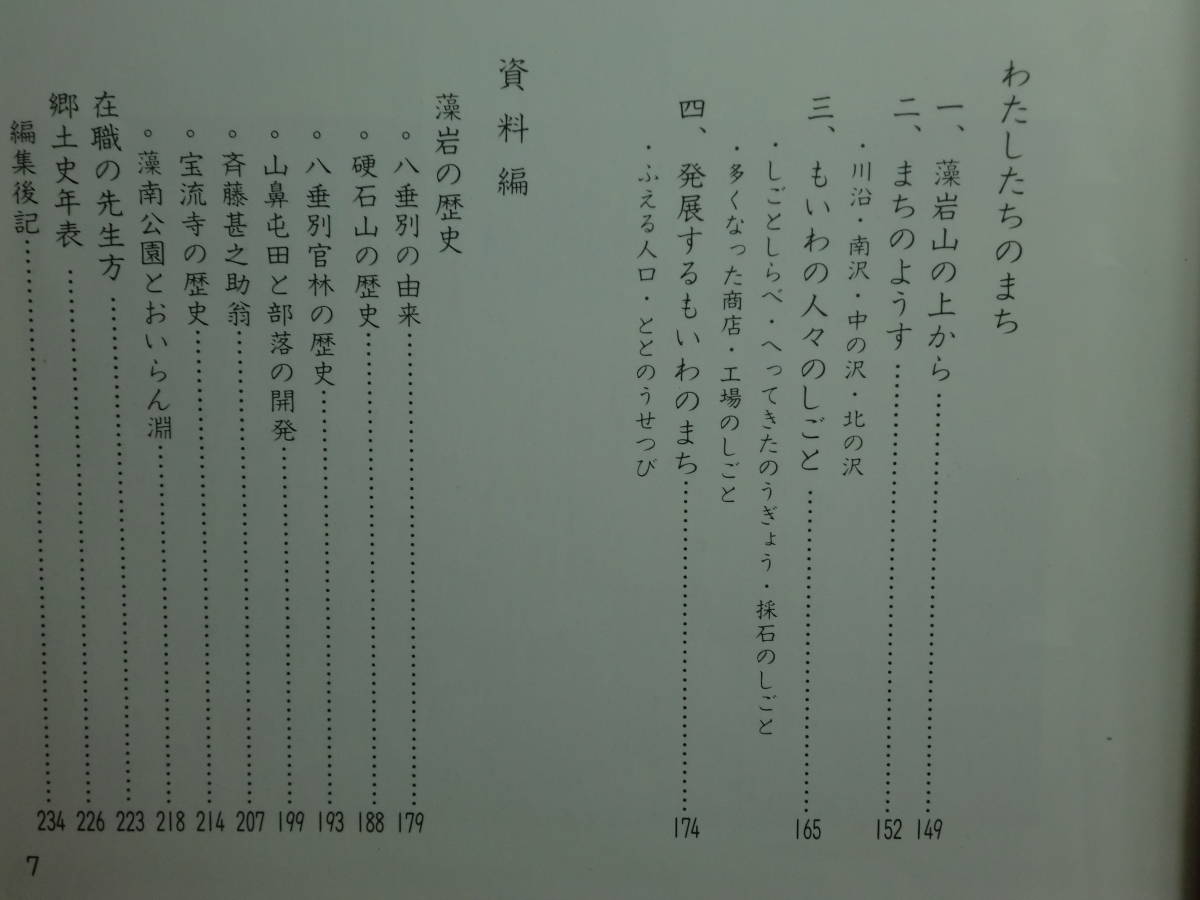 わたしたちのまち
一、藻岩山の上から……………………149
二、まちのようす……………………152
・川沿・南沢・中の沢・北の沢
三、もいわの人々のしごと……………………165
・しごとしらべ・へってきたのうぎょう・採石のしごと
・多くなった商店・工場のしごと
四、発展するもいわのまち……………………174
・ふえる人口・ととのうせつび
資料編
藻岩の歴史
○八垂別の由来……………………179
○硬石山の歴史……………………188
○八垂別官林の歴史……………………193
○山鼻屯田と部落の開発……………………199
○斉藤甚之助翁……………………207
○宝流寺の歴史……………………214
○藻南公園とおいらん淵……………………218
在職の先生方……………………223
郷土史年表……………………226
編集後記……………………234
7